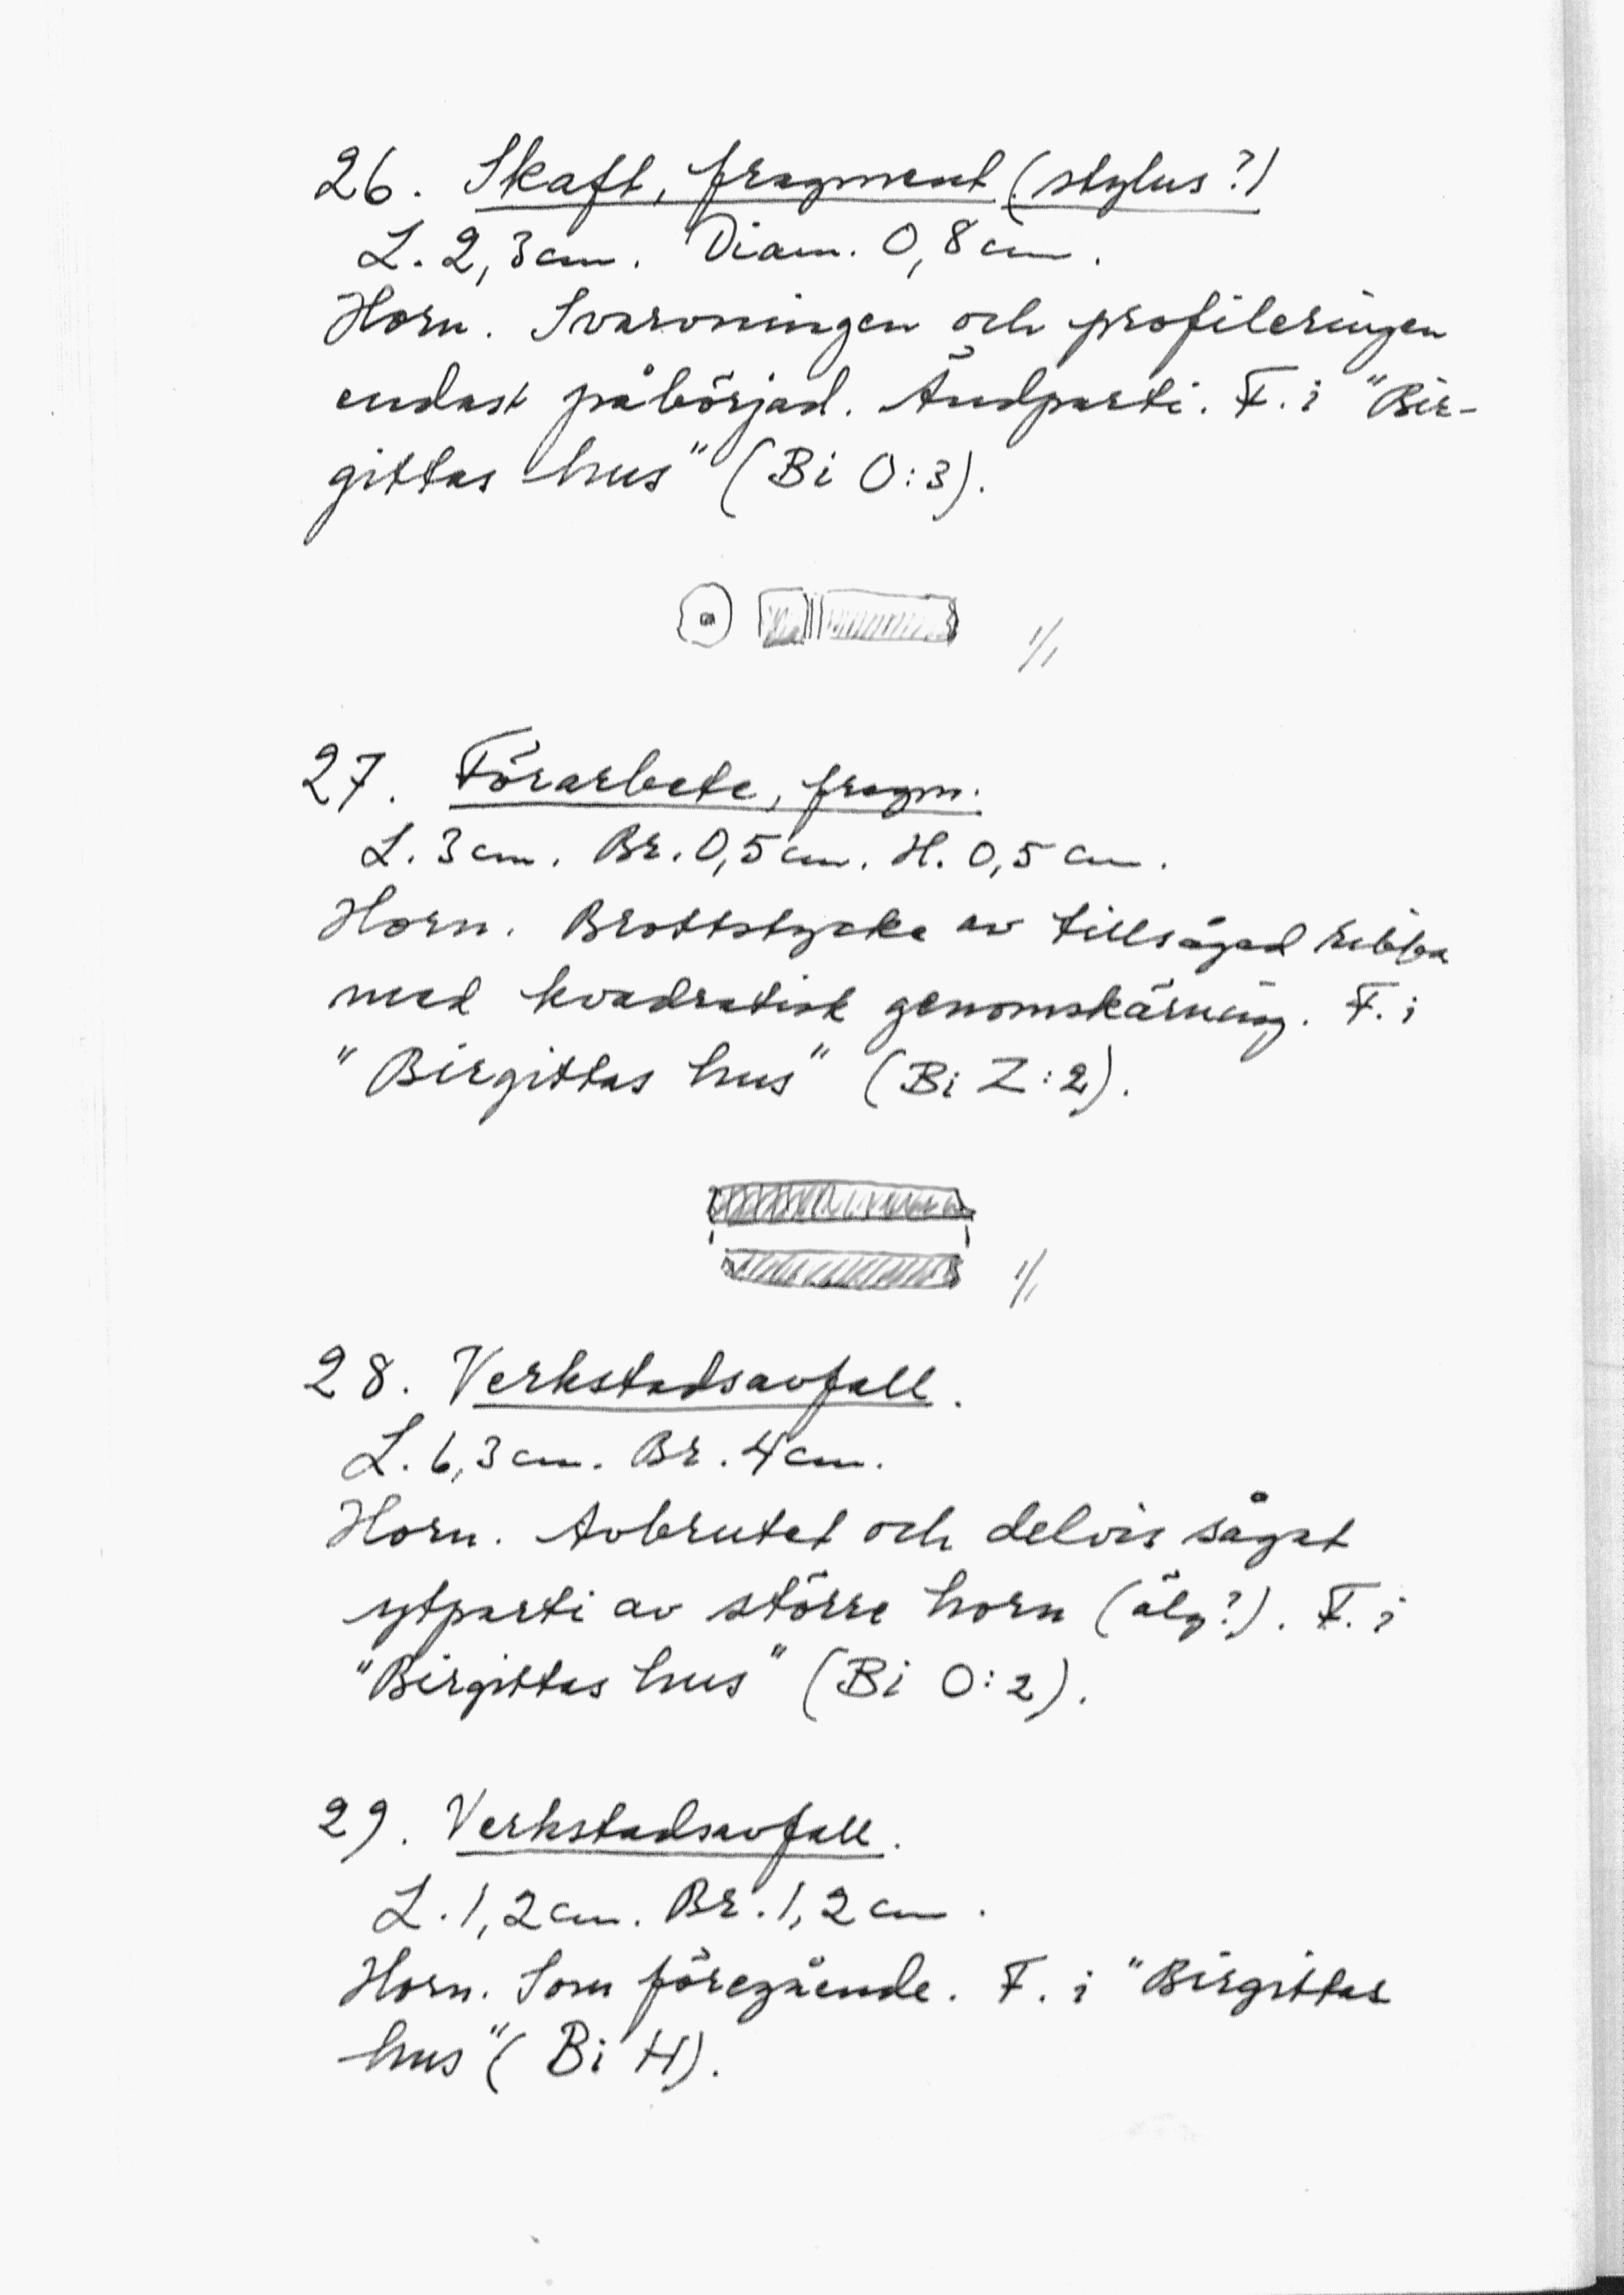 26. Skaft, fragment (stylus?)
L. 2,3 cm. Diam. 0,8 cm.
Horn. Svarvningen och profileringen
endast påbörjad. Ändparti. F. i "Bir-
gittas hus" (Bi O:3).
1/1
27. Förarbete, fragm.
L. 3 cm. Br. 0,5 cm. H. 0,5 cm.
Horn. Brottstycke av tillsågad ribba
med kvadratisk genomskärning. F. i
"Birgittas hus" (Bi Z:2).
1/1
28. Verkstadsavfall.
L. 6,3 cm. Br. 4 cm.
Horn. Avbrutet och delvis sågat
ytparti av större horn (älg?). F. i
"Birgittas hus" (Bi O:2).
29. Verkstadsavfall.
L. 1,2 cm. Br. 1,2 cm.
Horn. Som föregående. F. i "Birgittas
hus" (Bi H).